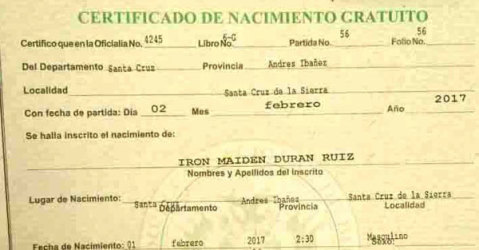 CERTIFICADO DE NACIMIENTO GRATUITO
Certifico que en la Oficialia No. 4245 Libro No. 6-G Partida No. 56 Folio No. 56
Del Departamento Santa Cruz Provincia Andres Ibañez
Localidad Santa Cruz de la Sierra
Con fecha de partida: Dia 02 Mes febrero Año 2017
Se halla inscrito el nacimiento de:
IRON MAIDEN DURAN RUIZ
Nombres y Apellidos del Inscrito
Lugar de Nacimiento: Santa Cruz Andres Ibañez Santa Cruz de la Sierra
Departamento Provincia Localidad
Fecha de Nacimiento: 01 febrero 2017 2:30 Masculino
Sexo: